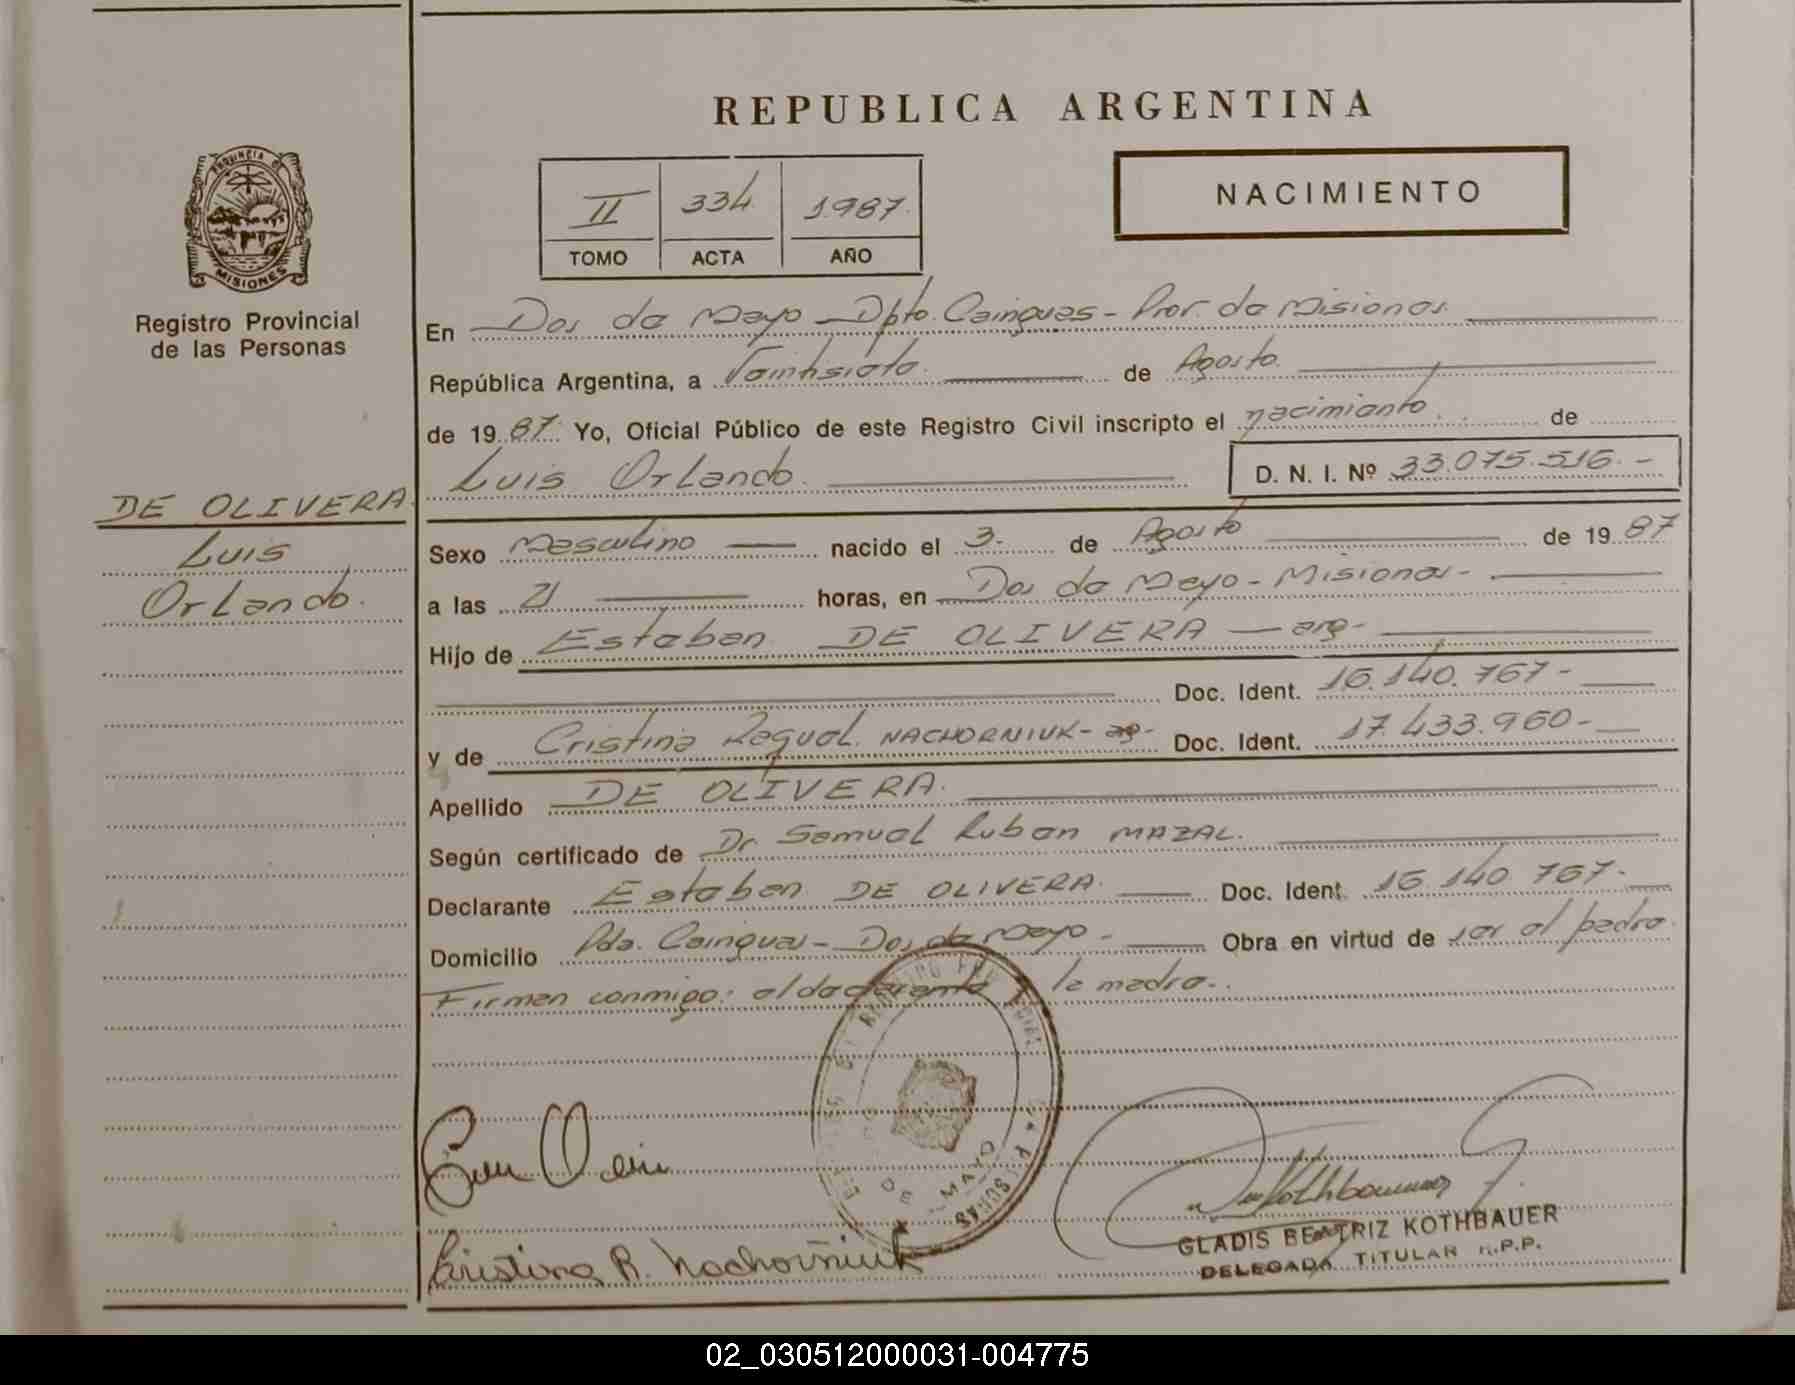 REPUBLICA ARGENTINA
PROVINCIA DE
MISIONES
Registro Provincial
de las Personas
II 334 1987
TOMO ACTA AÑO
NACIMIENTO
En Dos de Mayo - Dpto. Cainguas - Prov. de Misiones
República Argentina, a Veintisiete de Agosto
de 19 87 Yo, Oficial Público de este Registro Civil inscripto el nacimiento de
Luis Orlando D. N. I. Nº 33.075.516.-
DE OLIVERA
Luis
Orlando.
Sexo Masculino nacido el 3 de Agosto de 19 87
a las 21 horas, en Dos de Mayo - Misiones -
Hijo de Esteban DE OLIVERA — arg-
Doc. Ident. 16.140.767 -
y de Cristina Raquel NACHORNIUK - Doc. Ident. 17.433.960 -
Apellido DE OLIVERA.
Según certificado de Dr. Samuel Ruben MAZAL.
Declarante Esteban DE OLIVERA. Doc. Ident. 16.140.767.
Domicilio Pdo. Cainguas - Dos de Mayo - Obra en virtud de ser el padre.
Firman conmigo: el declarante la madre.
DE MAYO
Cristina R. Nachorniuk
GLADIS BEATRIZ KOTHBAUER
DELEGADA TITULAR R.P.P.
02_030512000031-004775